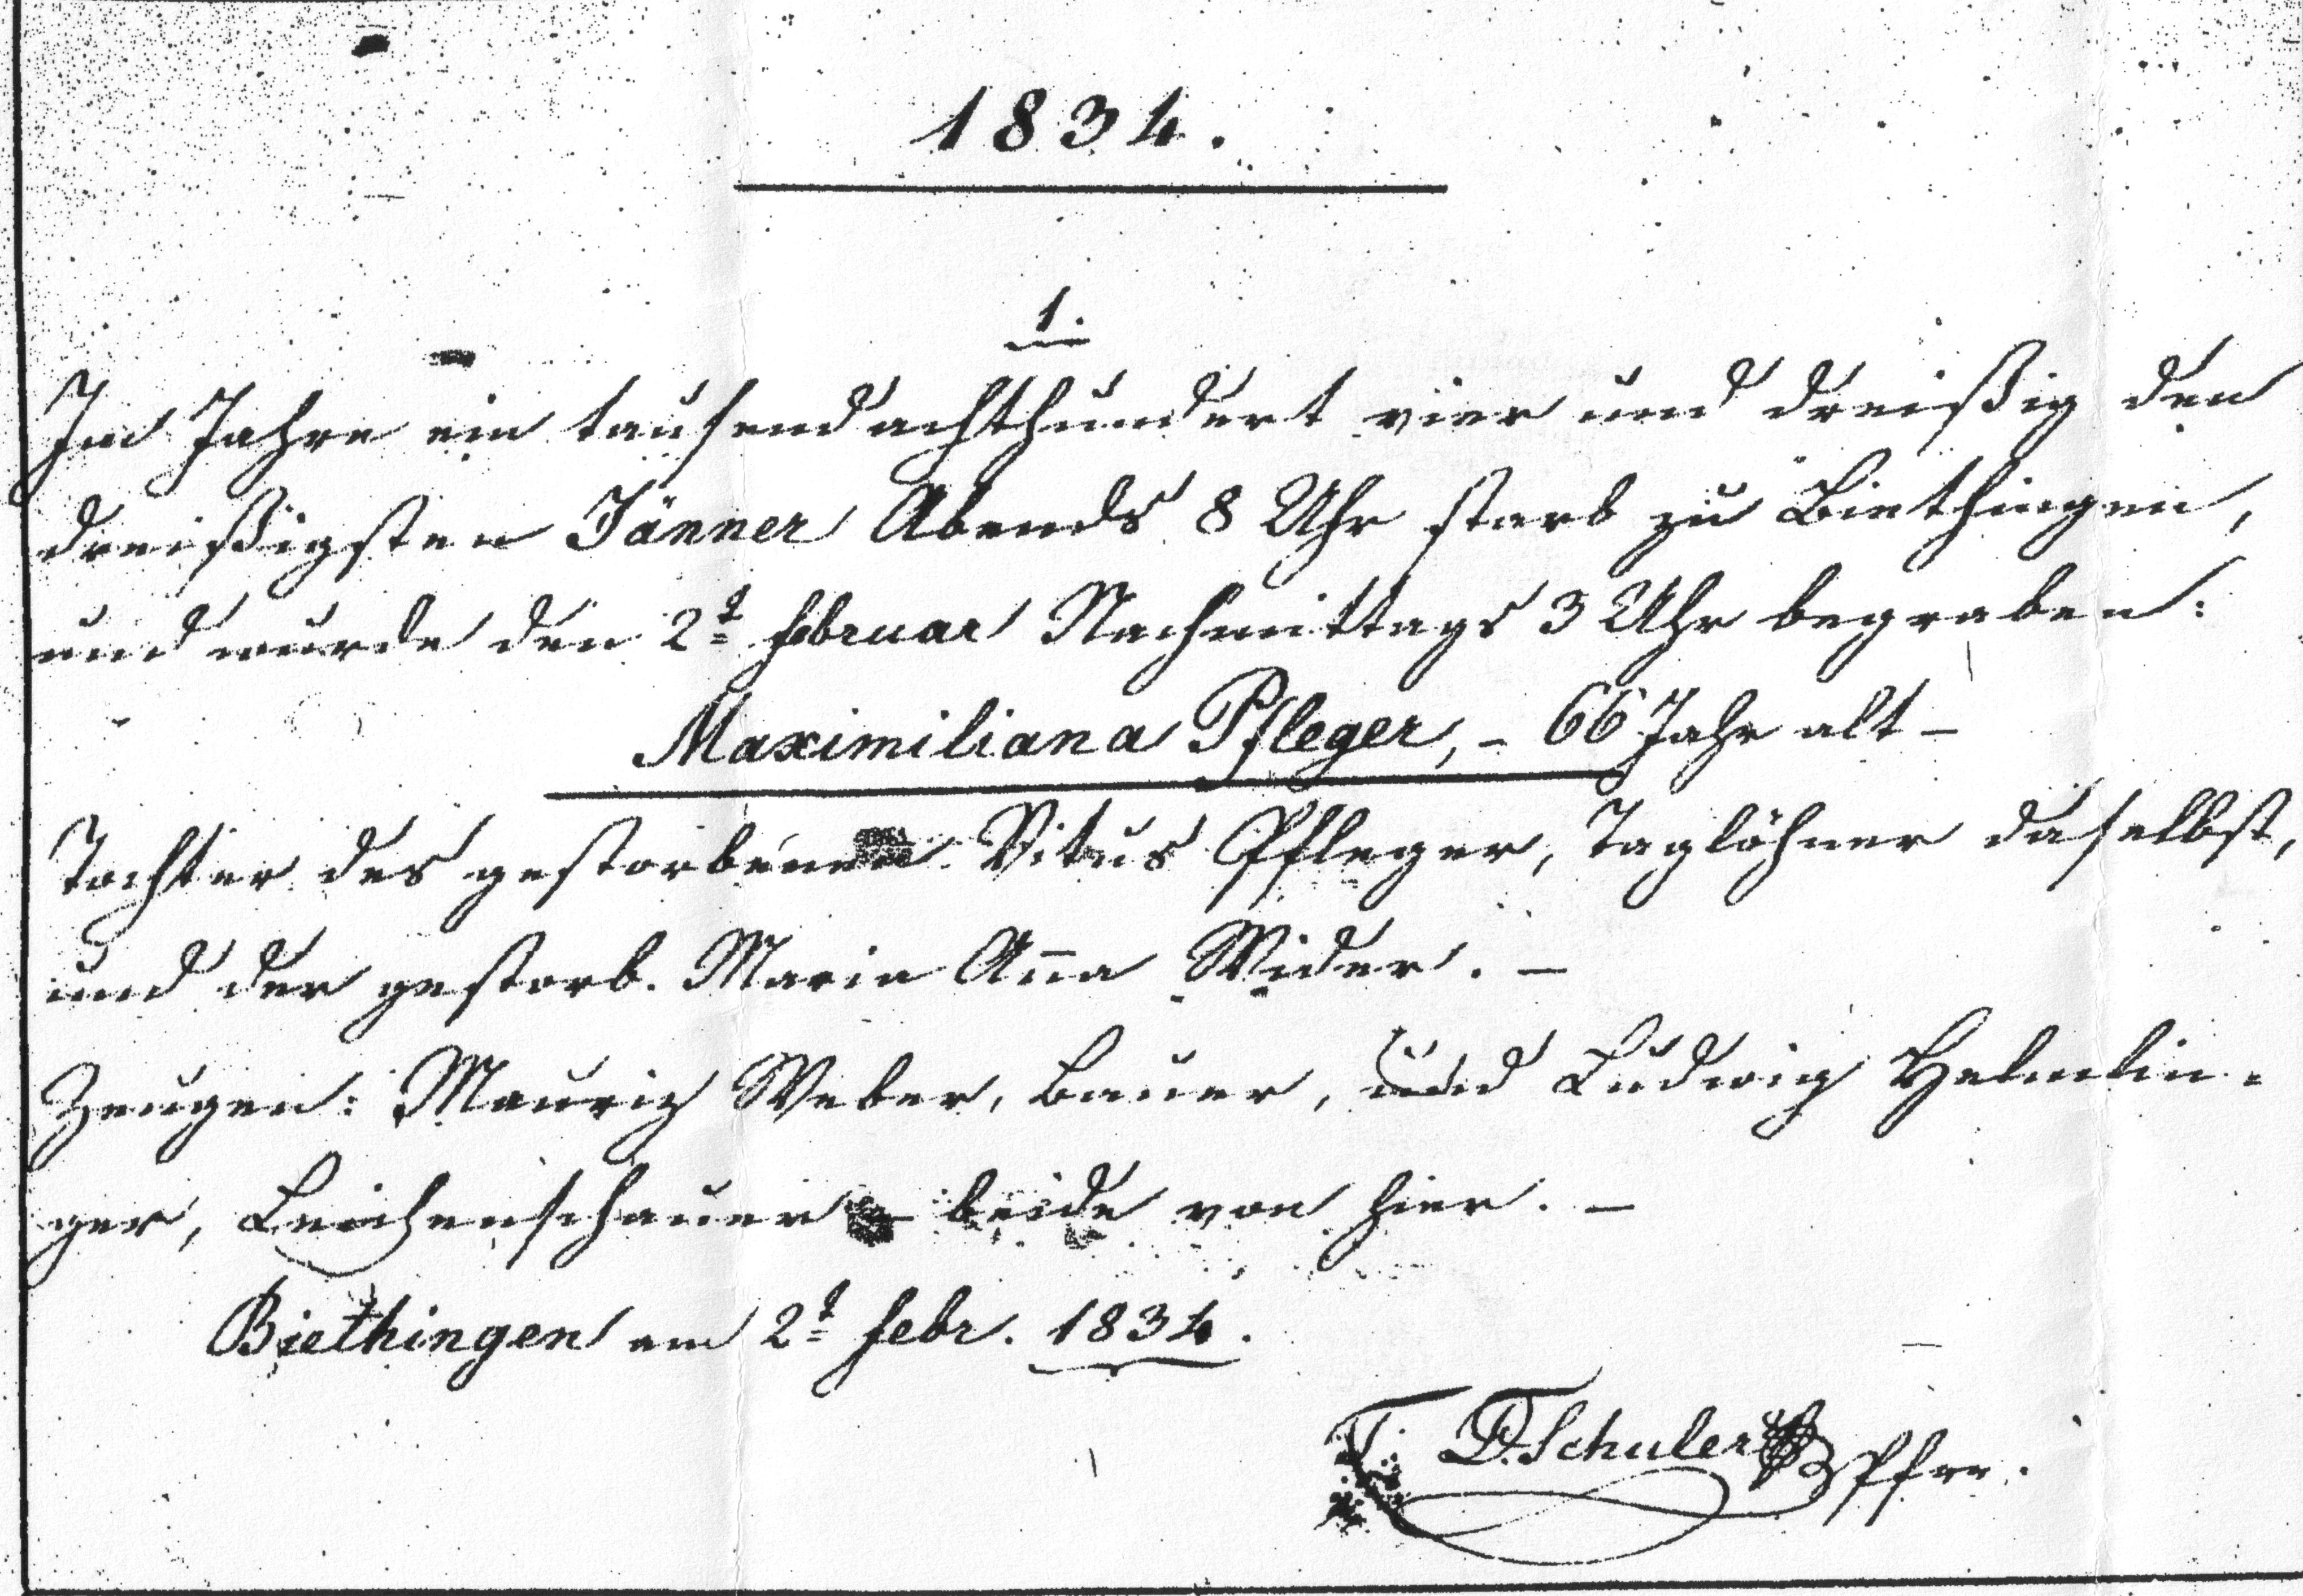 1834.
1.
Im Jahre ein tausend achthundert vier und dreißig den
dreißigsten Jänner Abends 8 Uhr starb zu Biethingen,
und wurde den 2t februar Nachmittags 3 Uhr begraben:
Maximiliana Pfleger, – 66 Jahr alt –
Tochter des gestorbenen Vitus Pfleger, Taglöhner daselbst,
und der gestorb. Maria Aña Wider. –
Zeugen: Mauriz Weber, Bauer, und Ludwig Helmlin-
ger, Leichenschauer – beide von hier. –
Biethingen am 2t febr. 1834.
D. Schuler Pfrr.